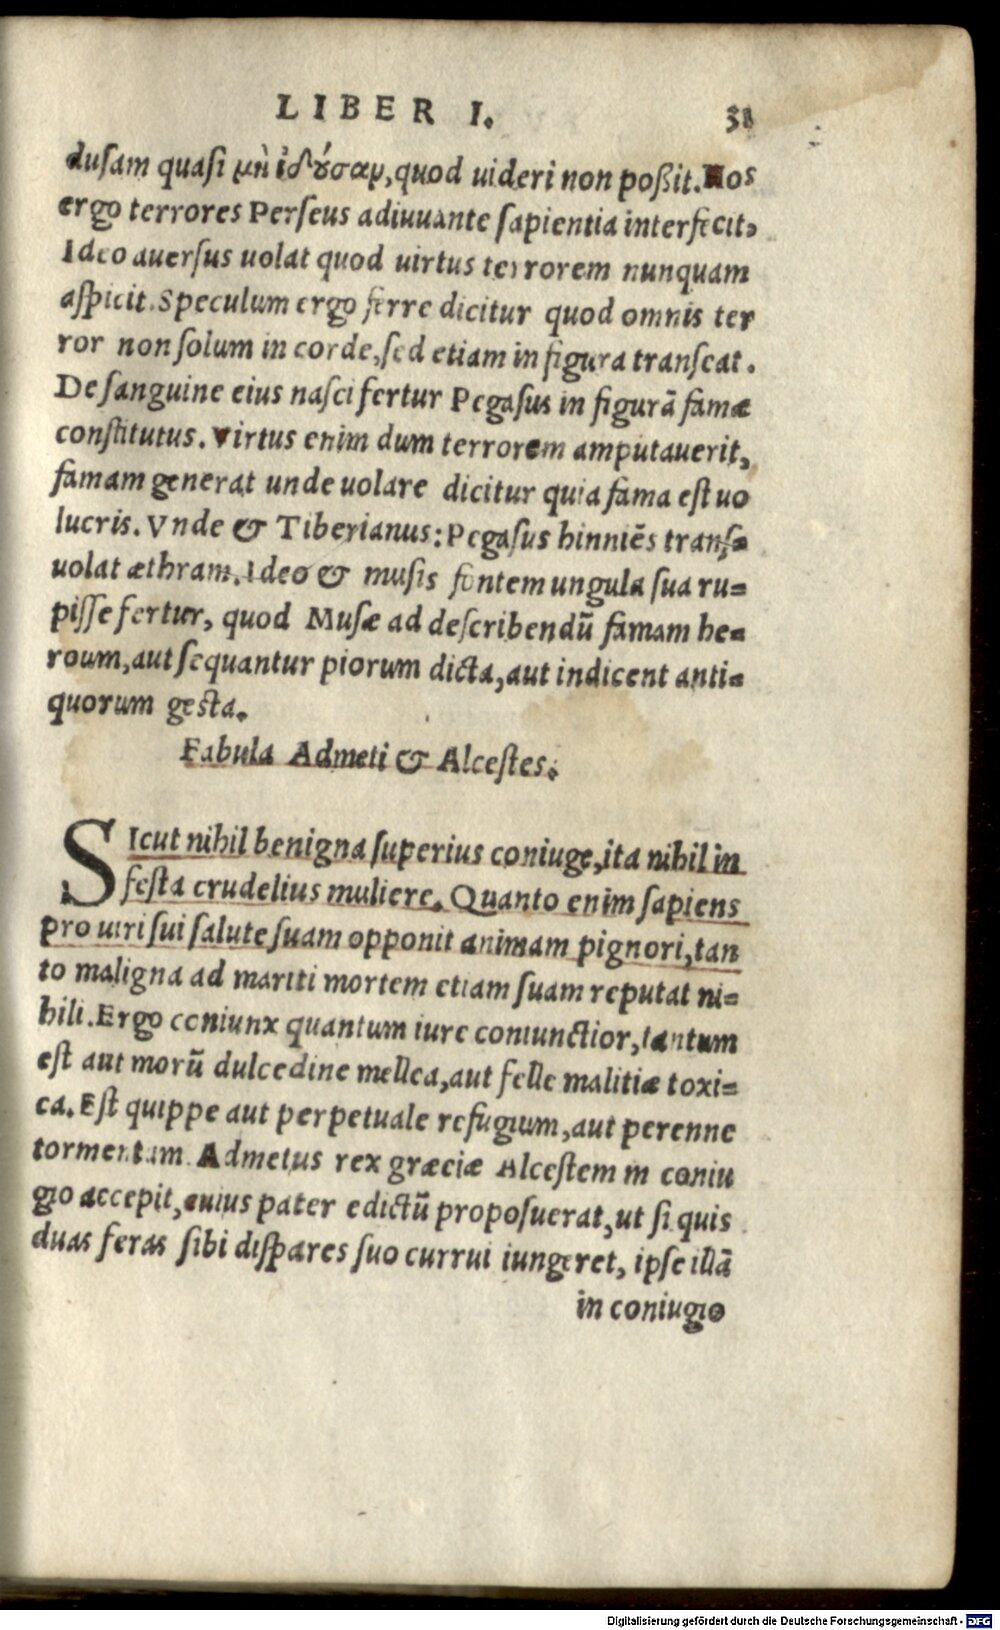 LIBER I. 31
duſam quaſi μὴ ἰδοῦσαμ, quod uideri non poßit. Hos
ergo terrores Perſeus adiuuante ſapientia interfecit.
Ideo auerſus uolat quod uirtus terrorem nunquam
aſpicit. Speculum ergo ferre dicitur quod omnis ter
ror non ſolum in corde, ſed etiam in figura tranſeat.
De ſanguine eius naſci fertur Pegaſus in figurã famæ
conſtitutus. Virtus enim dum terrorem amputauerit,
famam generat unde uolare dicitur quia fama eſt uo
lucris. Vnde & Tiberianus: Pegaſus hinniẽs tranſ=
uolat æthram. Ideo & muſis fontem ungula ſua ru=
piſſe fertur, quod Muſæ ad deſcribendũ famam he=
roum, aut ſequantur piorum dicta, aut indicent anti=
quorum geſta.
Fabula Admeti & Alceſtes.
SIcut nihil benigna ſuperius coniuge, ita nihil in
feſta crudelius muliere. Quanto enim ſapiens
pro uiri ſui ſalute ſuam opponit animam pignori, tan
to maligna ad mariti mortem etiam ſuam reputat ni=
hili. Ergo coniunx quantum iure coniunctior, tantum
eſt aut morũ dulcedine mellea, aut felle malitiæ toxi=
ca. Eſt quippe aut perpetuale refugium, aut perenne
tormentum. Admetus rex græciæ Alceſtem in coniu
gio accepit, cuius pater edictũ propoſuerat, ut ſi quis
duas feras ſibi diſpares ſuo currui iungeret, ipſe illã
in coniugio
Digitalisierung gefördert durch die Deutsche Forschungsgemeinschaft - DFG